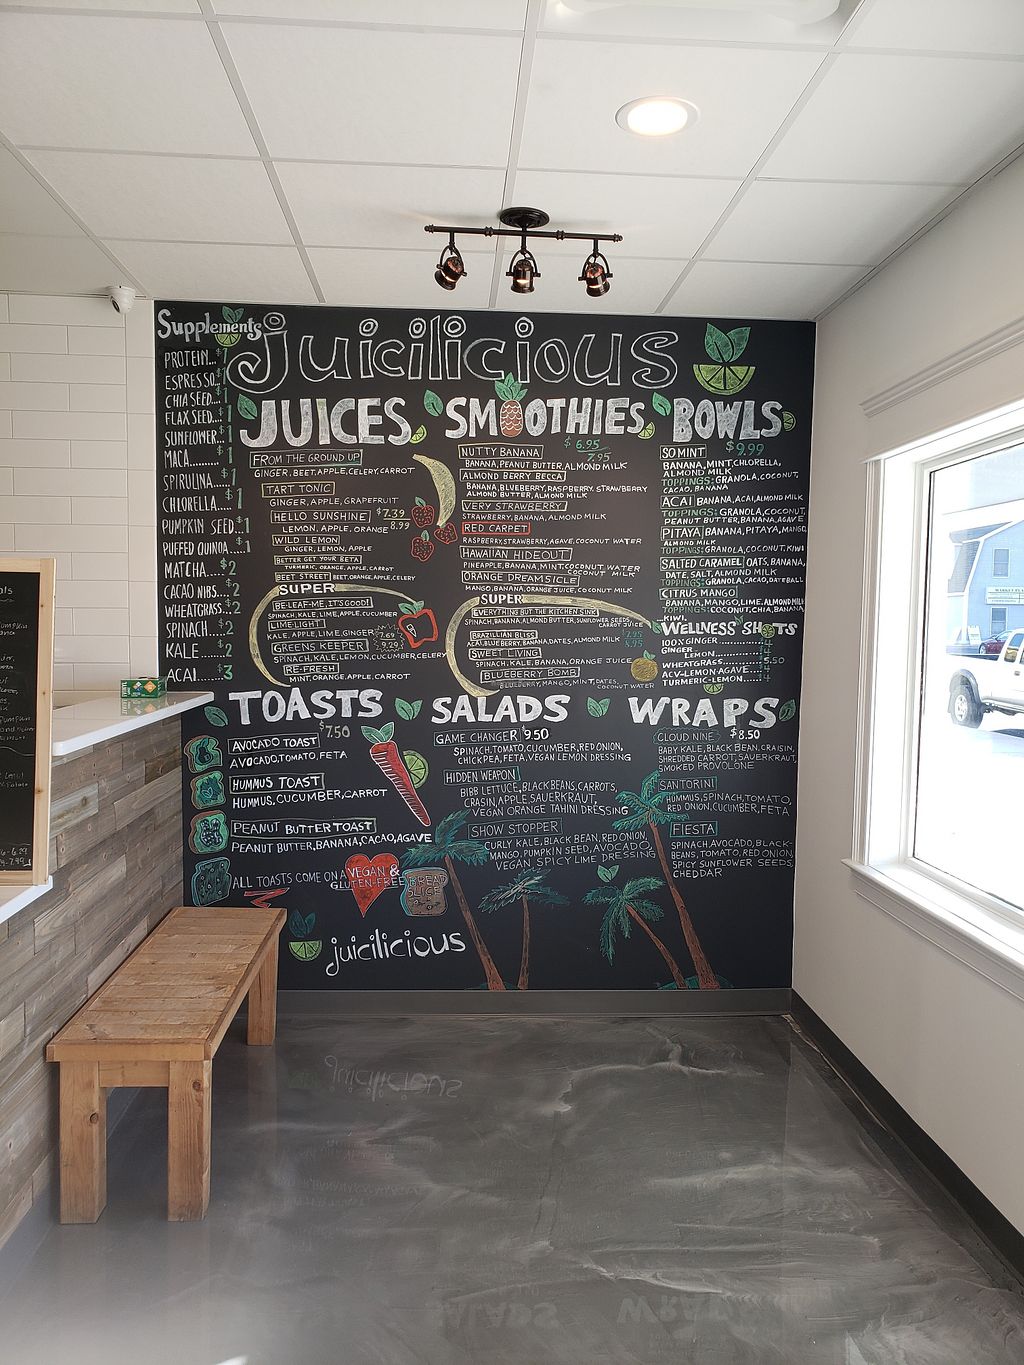 Supplements
PROTEIN...$1
ESPRESSO..$1
CHIA SEED..$1
FLAX SEED..$1
SUNFLOWER..$1
MACA........$1
SPIRULINA..$1
CHLORELLA..$1
PUMPKIN SEED.$1
PUFFED QUINOA..$1
MATCHA...$2
CACAO NIBS.$2
WHEATGRASS..$2
SPINACH..$2
KALE.....$2
ACAI....$3
juicilicious
JUICES
FROM THE GROUND UP
GINGER, BEET, APPLE, CELERY, CARROT
TART TONIC
GINGER, APPLE, GRAPEFRUIT
HELLO SUNSHINE $7.39
LEMON, APPLE, ORANGE 8.99
WILD LEMON
GINGER, LEMON, APPLE
BETTER GET YOUR BETA
TURMERIC, ORANGE, APPLE, CARROT
BEET STREET BEET, ORANGE, APPLE, CELERY
SUPER
BE-LEAF-ME, IT'S GOOD!
SPINACH, KALE, LIME, APPLE, CUCUMBER
LIME LIGHT
KALE, APPLE, LIME, GINGER 7.69
GREENS KEEPER 9.29
SPINACH, KALE, LEMON, CUCUMBER, CELERY
RE-FRESH
MINT, ORANGE, APPLE, CARROT
SMOOTHIES
$6.95
NUTTY BANANA 7.95
BANANA, PEANUT BUTTER, ALMOND MILK
ALMOND BERRY BECCA
BANANA, BLUEBERRY, RASPBERRY, STRAWBERRY
ALMOND BUTTER, ALMOND MILK
VERY STRAWBERRY
STRAWBERRY, BANANA, ALMOND MILK
RED CARPET
RASPBERRY, STRAWBERRY, AGAVE, COCONUT WATER
HAWAIIAN HIDEOUT
PINEAPPLE, BANANA, MINT, COCONUT WATER
COCONUT MILK
ORANGE DREAMSICLE
MANGO, BANANA, ORANGE JUICE, COCONUT MILK
SUPER
EVERYTHING BUT THE KITCHEN SINK
SPINACH, BANANA, ALMOND BUTTER, SUNFLOWER SEEDS,
CARROT JUICE
BRAZILIAN BLISS
ACAI, BLUEBERRY, BANANA, DATES, ALMOND MILK
SWEET LIVING
SPINACH, KALE, BANANA, ORANGE JUICE
BLUEBERRY BOMB
BLUEBERRY, MANGO, MINT, DATES,
COCONUT WATER
BOWLS
SO MINT $9.99
BANANA, MINT, CHLORELLA,
ALMOND MILK
TOPPINGS: GRANOLA, COCONUT,
CACAO, BANANA
ACAI BANANA, ACAI, ALMOND MILK
TOPPINGS: GRANOLA, COCONUT,
PEANUT BUTTER, BANANA, AGAVE
PITAYA BANANA, PITAYA, MANGO,
ALMOND MILK
TOPPINGS: GRANOLA, COCONUT, KIWI
SALTED CARAMEL OATS, BANANA,
DATE, SALT, ALMOND MILK
TOPPINGS: GRANOLA, CACAO, DATE BALL
CITRUS MANGO
BANANA, MANGO, LIME, ALMOND MILK
TOPPINGS: COCONUT, CHIA, BANANA,
KIWI,
WELLNESS SHOTS
100% GINGER
GINGER
LEMON
WHEATGRASS 5.50
ACV-LEMON/AGAVE
TURMERIC-LEMON
TOASTS
$7.50
AVOCADO TOAST
AVOCADO, TOMATO, FETA
HUMMUS TOAST
HUMMUS, CUCUMBER, CARROT
PEANUT BUTTER TOAST
PEANUT BUTTER, BANANA, CACAO, AGAVE
ALL TOASTS COME ON A VEGAN &
GLUTEN-FREE
BREAD
SLICE
SALADS
GAME CHANGER $9.50
SPINACH, TOMATO, CUCUMBER, RED ONION,
CHICKPEA, FETA, VEGAN LEMON DRESSING
HIDDEN WEAPON
BIBB LETTUCE, BLACK BEANS, CARROTS,
CRASIN, APPLE, SAUERKRAUT,
VEGAN ORANGE TAHINI DRESSING
SHOW STOPPER
CURLY KALE, BLACK BEAN, RED ONION,
MANGO, PUMPKIN SEED, AVOCADO,
VEGAN SPICY LIME DRESSING
WRAPS
CLOUD NINE $8.50
BABY KALE, BLACK BEAN, CRAISIN,
SHREDDED CARROT, SAUERKRAUT,
SMOKED PROVOLONE
SANTORINI
HUMMUS, SPINACH, TOMATO,
RED ONION, CUCUMBER, FETA
FIESTA
SPINACH, AVOCADO, BLACK-
BEANS, TOMATO, RED ONION,
SPICY SUNFLOWER SEEDS,
CHEDDAR
juicilicious